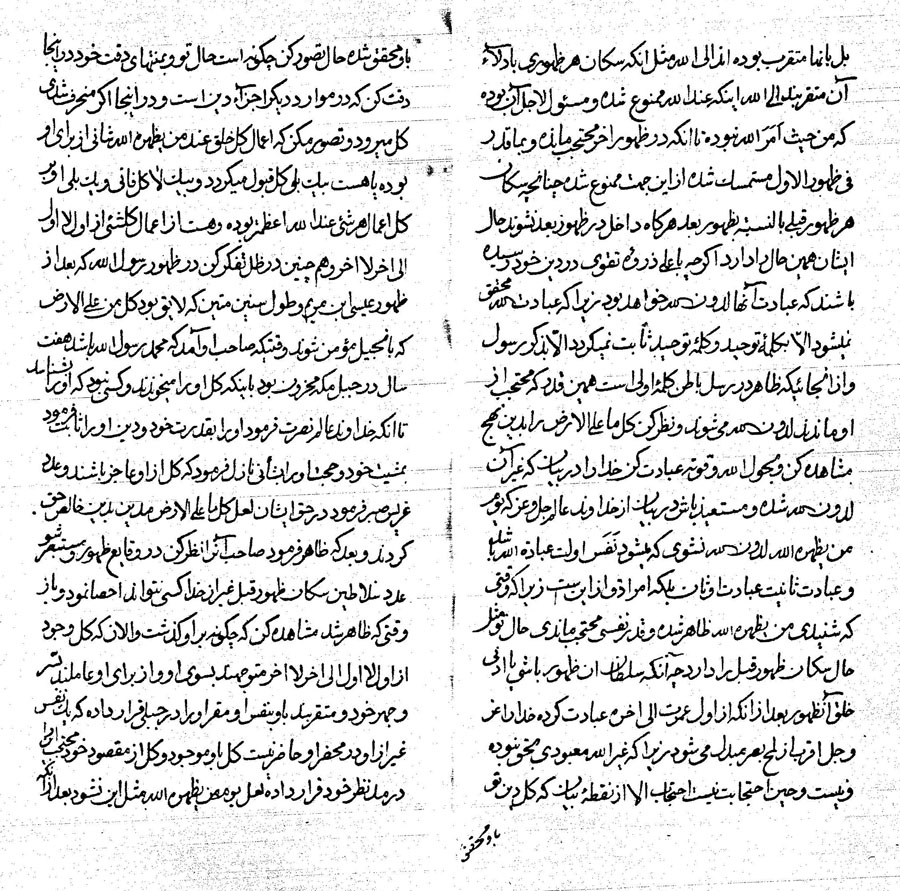 بل بانها متقرب بوده اند الی الله مثل انکه سکان هر ظهوری بادلاء
آن متقربند الی الله اینکه عند الله ممنوع شده و مسئول لاجل آن بوده
که من حیث امر الله نبوده تا انکه در ظهور اخر محتجب مانده و بما قدر
فی ظهور الاول متمسک شده از این جهت ممنوع شده چنانچه سکان
هر ظهور قبلی بالنسبة بظهور بعد هر گاه داخل در ظهور بعد نشوند حال
ایشان همین حال را دارد اگر چه باعلی ذروه تقوی در دین خود رسیده
باشند که عبادت آنها لدون الله خواهد بود زیرا که عبادت لله محقق
نمیشود الا بکلمه توحید و کلمه توحید ثابت نمیگردد الا بذکر رسول
و از انجائیکه ظاهر در رسل باطن کلمه اولی است همین قدر که محتجب از
او ماندند لدون الله می شوند و نظر کن کل ما علی الارض را بدین نهج
مشاهده کن و بحول الله و قوته عبادت کن خدا را در بیان که غیر آن
لدون الله شده و مستعیذ باش در بیان از خداوند عالم جل و عز که یوم
من یظهره الله لدون الله نشوی که میشود نفس اولت عبادة الله باشد
و عبادت ثانیت عبادت اوثان بلکه امر ادق از این است زیرا که وقتی
که شنیدی من یظهره الله ظاهر شده و قدر نفسی محتجب ماندی حال تو مثل
حال سکان ظهور قبل را دارد چه آنکه سلطان ان ظهور باشی یا ادنی
خلق آن ظهور بعد از انکه از اول عمرت الی اخره عبادت کرده خدا را عز
و جل اقرب از لمح بصر مبدل می شود زیرا که غیر الله معبودی محق نبوده
و نیست و حین احتجابت نیست احتجاب الا از نقطه بیان که کل دین تو
باو محقق
باو محقق شده حال تصور کن چگونه است حال تو و بمنتهای دقت خود در انجا
دقت کن که در موارد دیگر اجزاء دین است و در اینجا اگر منحرف شدی
کل میرود و تصور مکن که اعمال کل خلق عند من یظهره الله شانی از برای او
بوده یا هست بیک بلی کل قبول میگردد و بیک لا کل فانی و یک بلی او بر
کل اعمال هر شئ عند الله اعظم تر بوده و هست از اعمال کلشئ از اول لا اول
الی اخر لا اخر و هم چنین در ظل تفکر کن در ظهور رسول الله که بعد از
ظهور عیسی ابن مریم و طول سنین متین که لایق بود کل من علی الارض
که بانجیل مؤمن شوند وقتیکه صاحب او آمد که محمد رسول الله باشد هفت
سال در جبل مکه محزون بود با اینکه کل او را میخواندند و کسی نبود که او را بشناسد
تا انکه خداوند عالم نصرت فرمود او را بقدرت خود و دین او را ثابت فرمود
بمشیت خود و حجت او را بشأنی نازل فرمود که کل از او عاجز باشند و عدد
غرس صبر فرمود در حق ایشان لعل کل ما علی الارض مدین بدین خالص حق
گردند و بعد که ظاهر فرمود صاحب آنرا نظر کن در وقایع ظهور و مستغفر شو
عدد سلاطین سکان ظهور قبل غیر از خدا کسی نتواند احصا نمود و باز
وقتی که ظاهر شد مشاهده کن که چگونه بر او گذشت و الان که کل وجود
از اول لا اول الی اخر لا اخر متوجهند بسوی او و از برای او عاملند بسر
و جهر خود و متقربند باو بنفس او مقر او را در جبلی قرار داده که یک نفس
غیر از او در محضر او حاضر نیست کل باو موجود و کل از مقصود خود محتجب او را
در مد نظر خود قرار داده لعل یوم من یظهره الله مثل این نشود بعد از آنکه